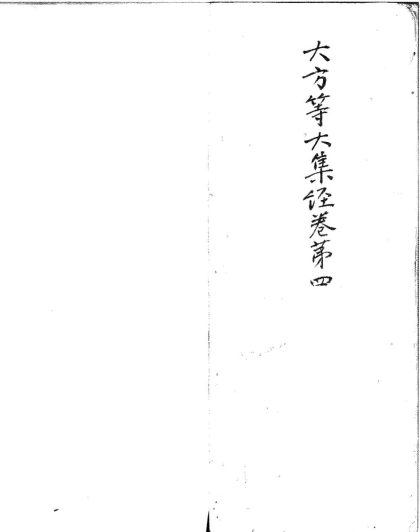 大方等大集经卷苐四